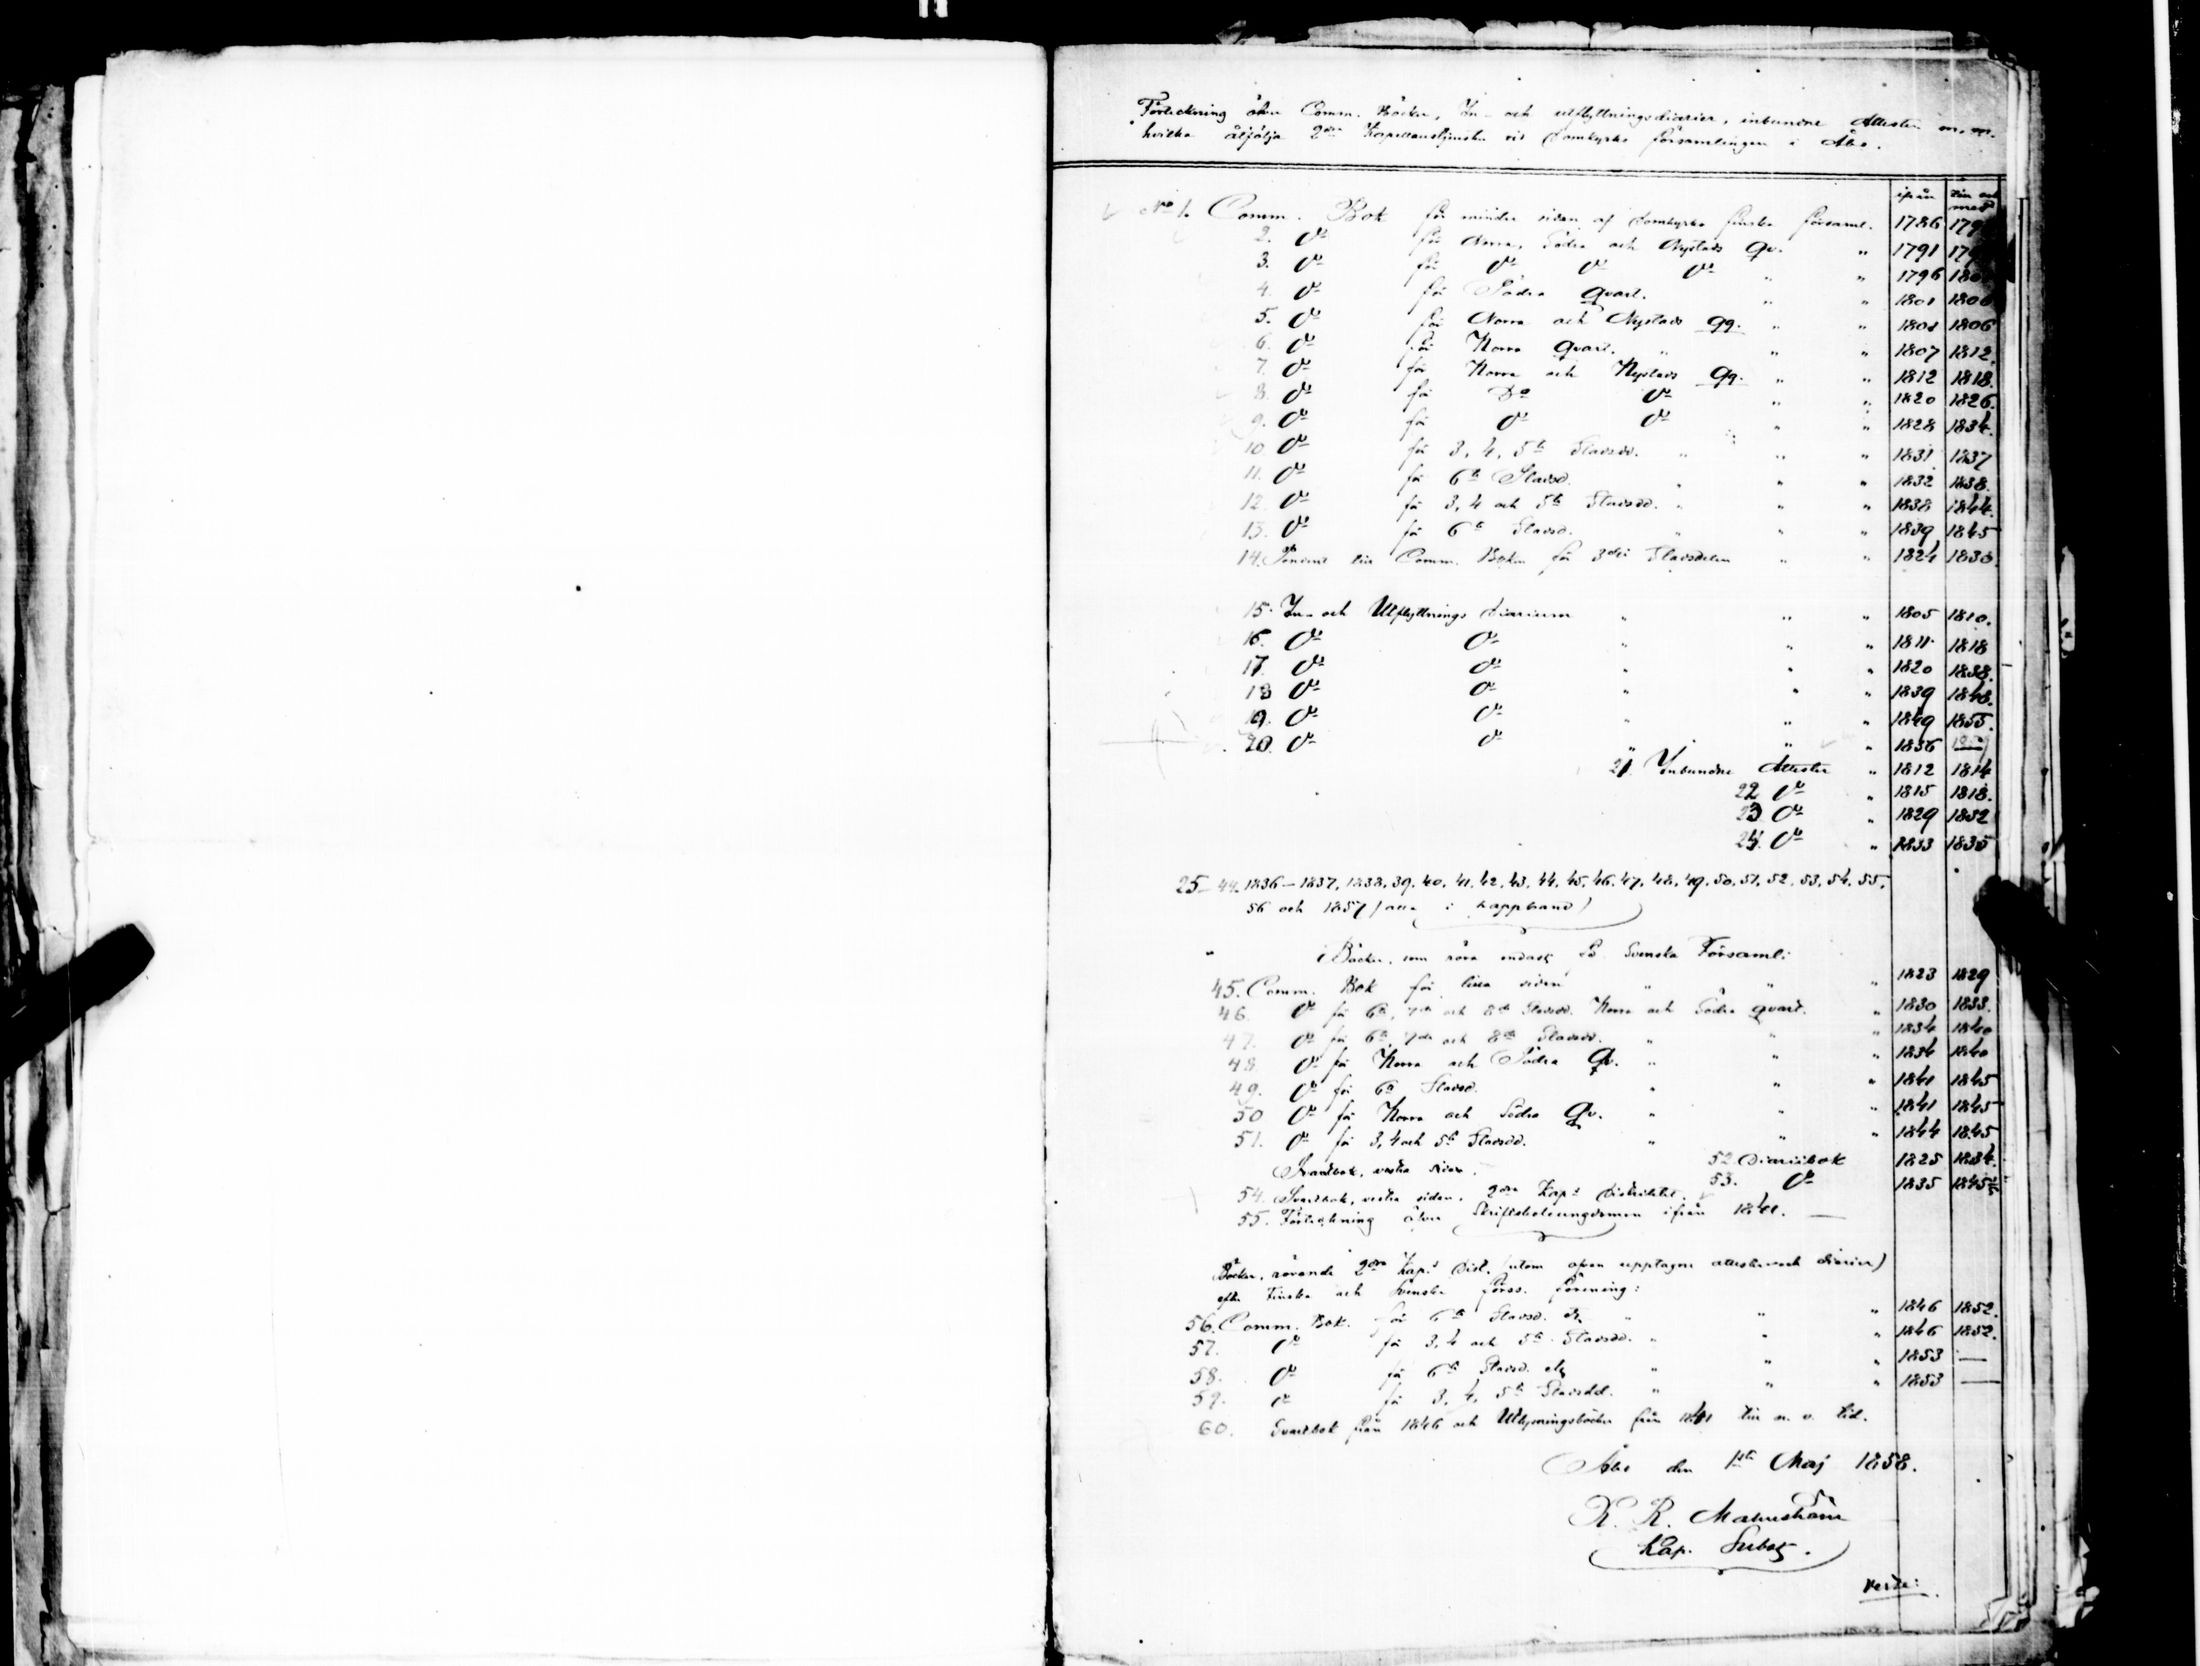 Förteckning öfver Comm. Böcker, In- och utflyttningsdiarier, inbundne Attester m. m.
hvilka åtfölja 2dra Kapellanstjensten vid Domkyrko församlingen i Åbo.
ifrån till och med
No 1. Comm. Bok för mindre sidan af Domkyrko finska församl. 1786 179
2. Do för Norra, Södra och Nystads Qv. " 1791 179
3. Do för Do Do Do " " 1796 180
4. Do för Södra Qvart. " " 1801 1806
5. Do för Norra och Nystads Qq. " " 1801 1806
6. Do för Norra Qvart. " " " 1807 1812.
7. Do för Norra och Nystads Qq. " " 1812 1818.
8. Do för Do Do " " 1820 1826.
9. Do för Do Do " " 1828 1834.
10. Do för 3, 4, 5te Stadsdd. " " " 1831 1837
11. Do för 6te Stadsd. " " " 1832 1838.
12. Do för 3, 4 och 5te Stadsdd. " " " 1838 1844.
13. Do för 6te Stadsd. " " " 1839 1845
14. till Comm. Boken för 3dje Stadsdelen " " 1824 1830.
15. In- och Utflyttnings Diarium " " " 1805 1810.
16. Do Do " " " 1811 1818
17. Do Do " " " 1820 1838.
18 Do Do " " " 1839 1848.
19. Do Do " " " 1849 1855.
20. Do Do " " " 1856
21. Inbundne Attester " 1812 1814
22 Do " 1815 1818.
23 Do " 1829 1832
24. Do " 1833 1835
25-44. 1836-1837, 1838, 39, 40, 41, 42, 43, 44, 45, 46, 47, 48, 49, 50, 51, 52, 53, 54, 55,
56 och 1857 (alla i pappband)
" Böcker, som röra endast Svenska Församl:
45. Comm. Bok för lilla sidan " " " 1823 1829
46. Do för 6te, 7de och 8de Stadsdd. Norra och Södra qvart. " 1830 1833.
47. Do för 6te, 7de och 8de Stadsdd. " " " 1834 1840
48. Do för Norra och Södra Qv. " " " 1834 1840
49. Do för 6te Stadsd. " " " 1841 1845
50 Do för Norra och Södra Qv. " " " 1841 1845
51. Do för 3, 4 och 5te Stadsdd. " " " 1844 1845
Svartbok, vestra sidan. 52. Diariibok 1825 1834.
53. Do 1835 1845
54. Svartbok, vestra sidan, 2dra Kap:s Distriktet.
55. Förteckning öfver Skriftskolungdomen ifrån
Böcker, rörande 2dra Kap:s Dist. (utom ofvan upptagne attester och diarier)
efter Finska och Svenska Förss. förening:
56. Comm. Bok. för 6te Stadsd. etc " " " 1846 1852.
57. Do för 3, 4 och 5te Stadsdd. " " " 1846 1852.
58. Do för 6te Stadsd. etc " " " 1853 —
59. Do för 3, 4, 5te Stadsdd. " " " 1853 —
60. Svartbok från 1846 och Utlysningsböcker från 1841 till n. v. tid.
Åbo den 1ste Maj 1858.
K. R. Malmström
Kap. Subst.
verte: